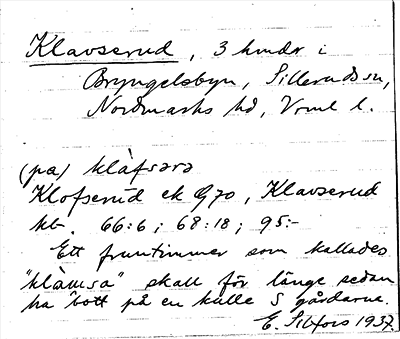 Klavserud, 3 hmdr i
Bryngelsbyn, Sillerudssn,
Nordmarks hd, Vrml l.
(på) klåfsərə
Klofserud ek G70, Klavserud
kb. 66:6; 68:18; 95:-
Ett fruntimmer som kallades
"klämsa" skall för länge sedan
ha bott på en kulle S gårdarne.
E. Sibfors 1937.